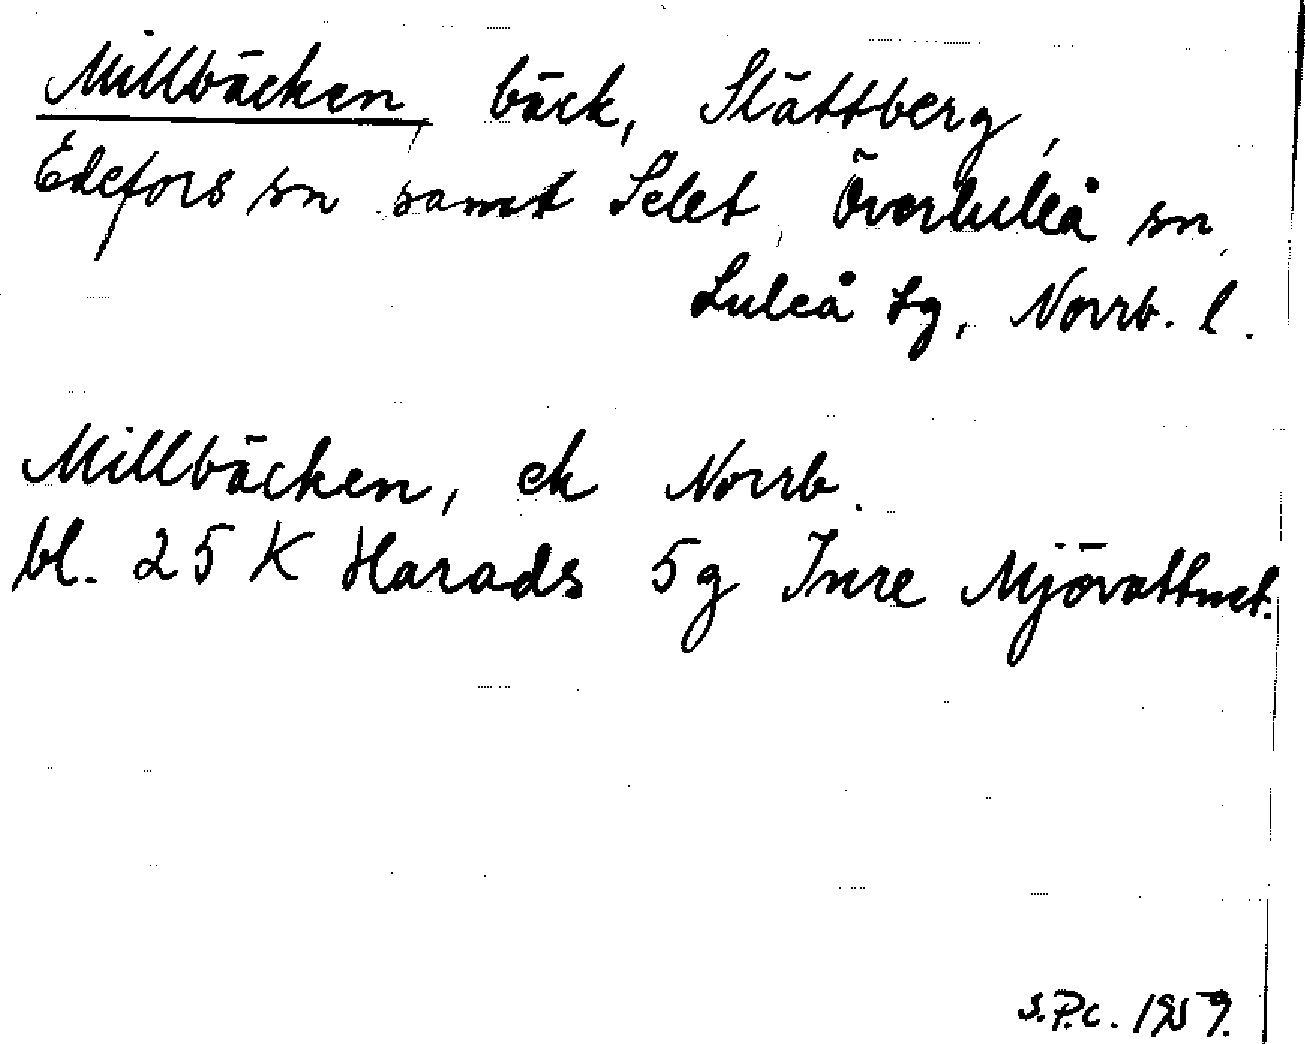 Millbäcken, bäck, Slättberg,
Edefors sn samt Selet, Överluleå sn,
Luleå tg, Norrb. l.
Millbäcken, ek Norrb.
bl. 25 K Harads 5g Inre Mjövattnet.
S.P.c. 1959.